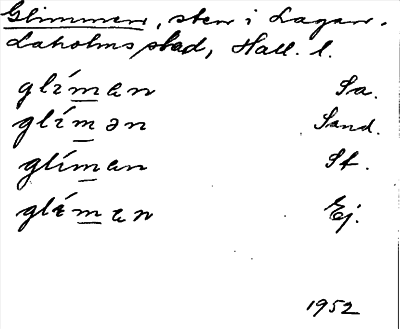 Glimmen, sten i Lagan.
Laholms stad, Hall. l.
glíman Sa.
glímən Sand.
glíman St.
glíman Ej.
1952